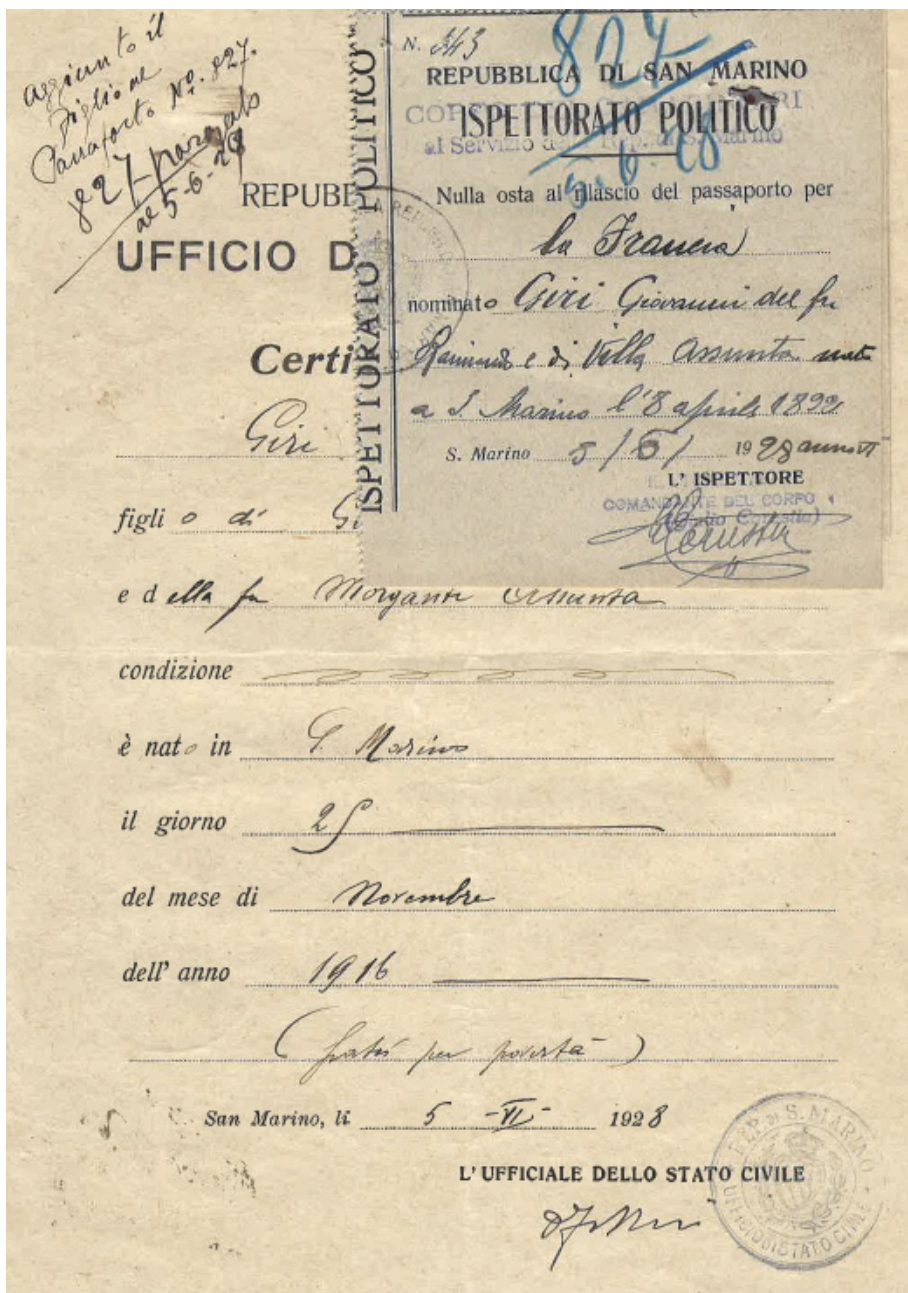 aggiunto il
figlio al
Passaporto No. 827.
827
al 5-6-28
REPUBB
UFFICIO D
Certi
Giri
figlio di Gi
e della fu Morganti Assunta
condizione
è nato in S. Marino
il giorno 25
del mese di Novembre
dell' anno 1916
(gratis per povertà)
San Marino, li 5 -VI- 1928
L'UFFICIALE DELLO STATO CIVILE
REP. DI S. MARINO
UFFICIO DI STATO CIVILE
ISPETTORATO POLITICO
N. 343
827
5-6-28
REPUBBLICA DI SAN MARINO
ISPETTORATO POLITICO
al Servizio della Rep. di S. Marino
Nulla osta al rilascio del passaporto per
la Francia
nominato Giri Giovanni del fu
Raimondo e di Villa Assunta nato
a S. Marino l'8 aprile
S. Marino 5/6/ 1928 anno VI
L' ISPETTORE
COMANDANTE DEL CORPO